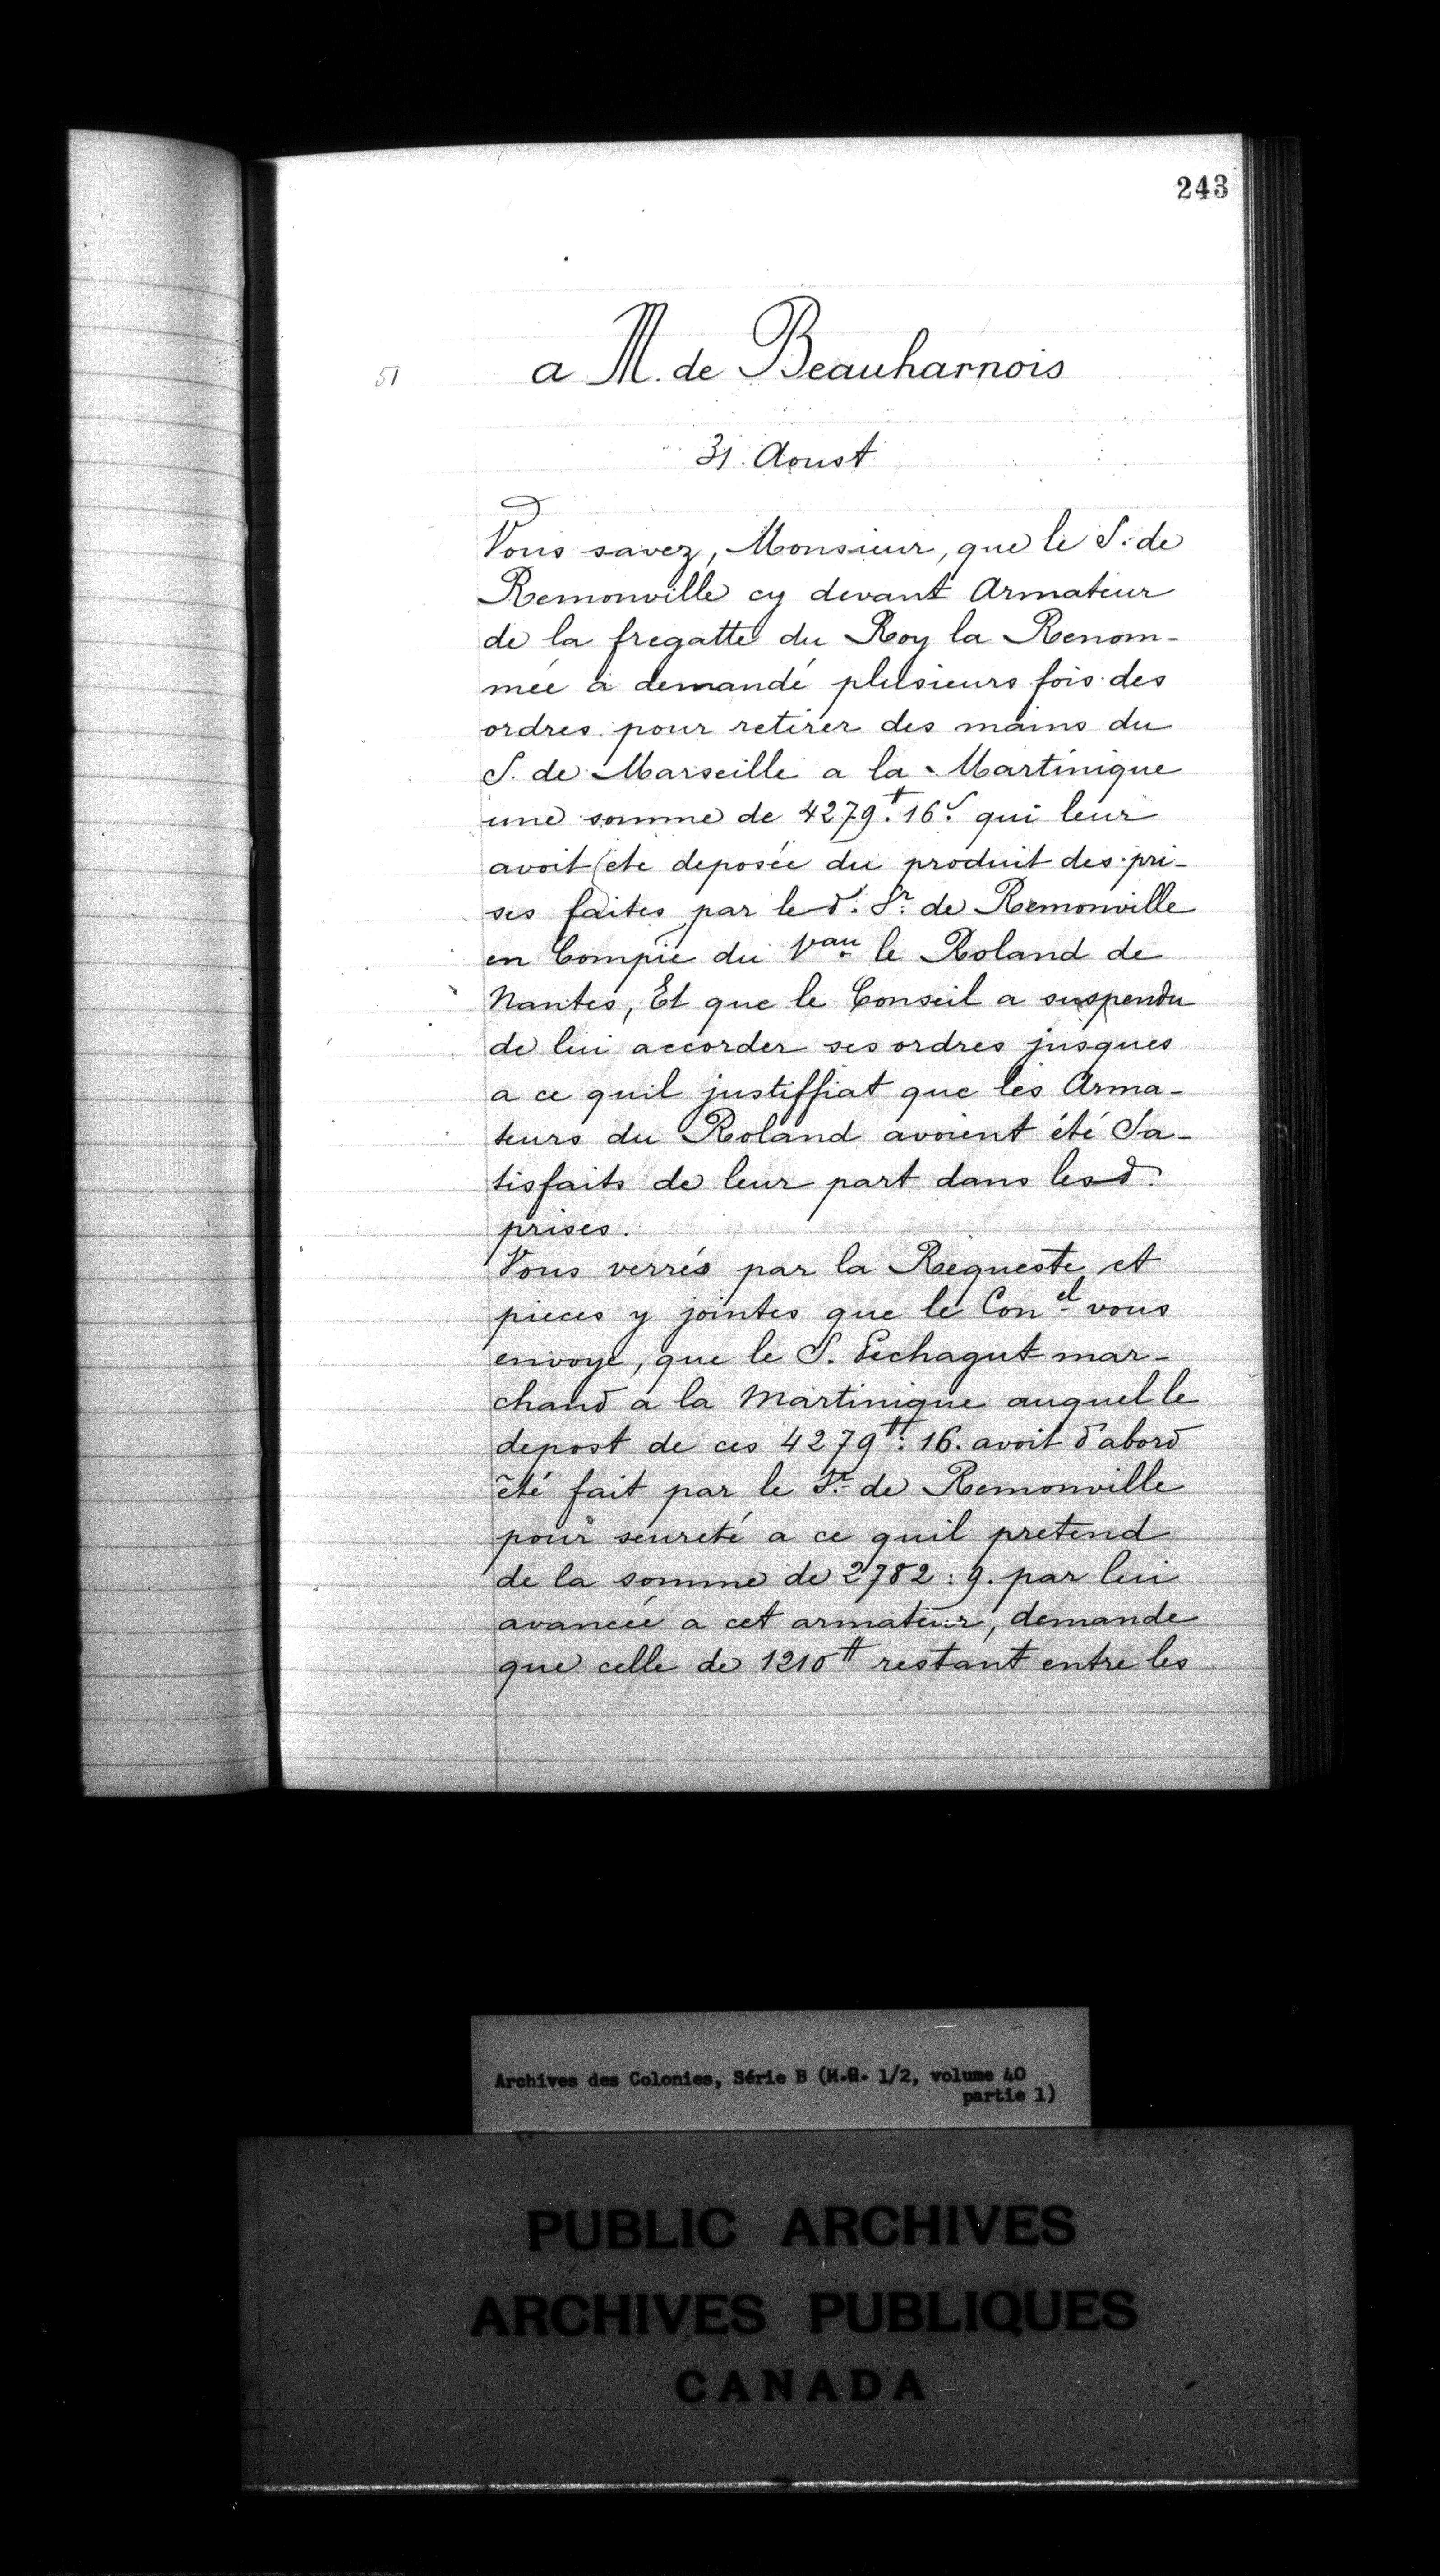 243
51
a M. de Beauharnois
31. Aoust
Vous savez, Monsieur, que le S. de
Remonville cy devant Armateur
de la fregatte du Roy la Renom-
mée a demandé plusieurs fois des
ordres pour retirer des mains du
S. de Marseille a la Martinique
une somme de 4279.ᵗᵗ 16.ˢ qui leur
avoit ete deposée du produit des pri-
ses faites par le d. Sr. de Remonville
en Compie du Vau. le Roland de
Nantes, Et que le Conseil a suspendu
de lui accorder ses ordres jusques
a ce quil justiffiat que les Arma-
teurs du Roland avoient été Sa-
tisfaits de leur part dans lesd.
prises.
Vous verrés par la Requeste et
pieces y jointes que le Con.el vous
envoye, que le S. Pechagut mar-
chand a la Martinique auquel le
depost de ces 4279ᵗᵗ: 16. avoit d'abord
été fait par le Sr. de Remonville
pour seureté a ce quil pretend
de la somme de 2782: 9. par lui
avancée a cet armateur, demande
que celle de 1210ᵗᵗ restant entre les
Archives des Colonies, Série B (M.G. 1/2, volume 40
partie 1)
PUBLIC ARCHIVES
ARCHIVES PUBLIQUES
CANADA